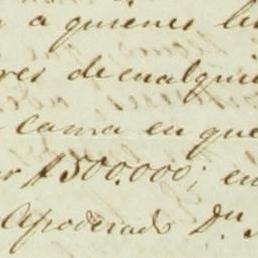 a quienes
res de cualqui
cama en que
$500.000; en
Apoderado Dn.